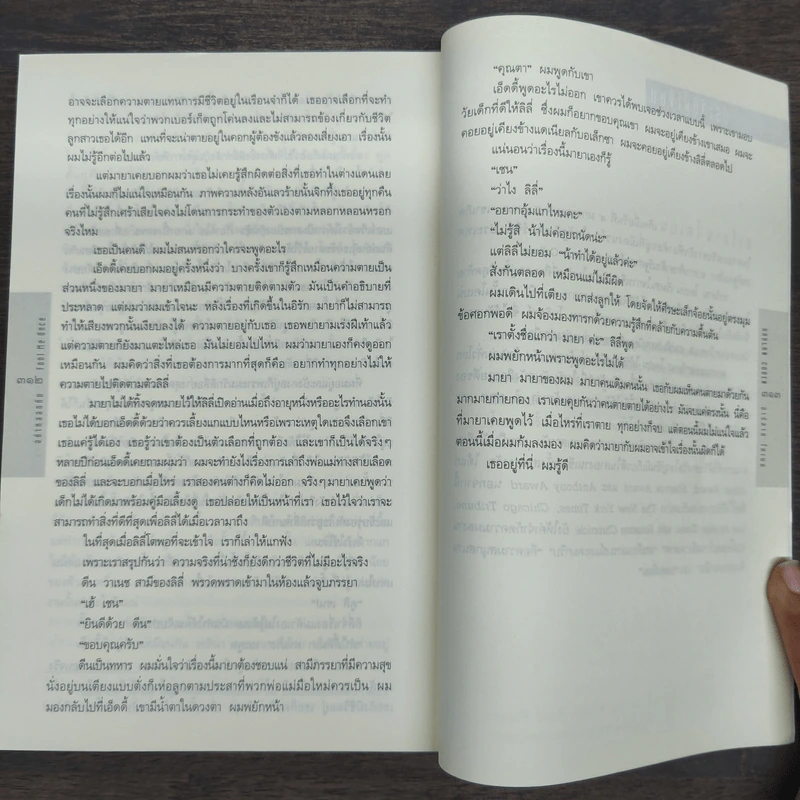 อาจจะเลือกความตายแทนการมีชีวิตอยู่ในเรือนจำก็ได้ เธออาจเลือกที่จะทำ
ทุกอย่างให้แน่ใจว่าพวกเบอร์เก็ตถูกโค่นลงและไม่สามารถข้องเกี่ยวกับชีวิต
ลูกสาวเธอได้อีก แทนที่จะเน่าตายอยู่ในคอกผู้ต้องขังแล้วลองเสี่ยงเอา เรื่องนั้น
ผมไม่รู้อีกต่อไปแล้ว
แต่มายาเคยบอกผมว่าเธอไม่เคยรู้สึกผิดต่อสิ่งที่เธอทำในต่างแดนเลย
เรื่องนั้นผมก็ไม่แน่ใจเหมือนกัน ภาพความหลังอันเลวร้ายนั้นจิกทึ้งเธออยู่ทุกคืน
คนที่ไม่รู้สึกเศร้าเสียใจคงไม่โดนการกระทำของตัวเองตามหลอกหลอนหรอก
จริงไหม
เธอเป็นคนดี ผมไม่สนหรอกว่าใครจะพูดอะไร
เอ็ดดี้เคยบอกผมอยู่ครั้งหนึ่งว่า บางครั้งเขาก็รู้สึกเหมือนความตายเป็น
ส่วนหนึ่งของมายา มายาเหมือนมีความตายติดตามตัว มันเป็นคำอธิบายที่
ประหลาด แต่ผมว่าผมเข้าใจนะ หลังเรื่องที่เกิดขึ้นในอิรัก มายาก็ไม่สามารถ
ทำให้เสียงพวกนั้นเงียบลงได้ ความตายอยู่กับเธอ เธอพยายามเร่งฝีเท้าแล้ว
แต่ความตายก็ยังมาแตะไหล่เธอ มันไม่ยอมไปไหน ผมว่ามายาเองก็คงดูออก
เหมือนกัน ผมคิดว่าสิ่งที่เธอต้องการมากที่สุดก็คือ อยากทำทุกอย่างไม่ให้
ความตายไปติดตามตัวลิลี่
มายาไม่ได้ทิ้งจดหมายไว้ให้ลิลี่เปิดอ่านเมื่อถึงอายุหนึ่งหรืออะไรทำนองนั้น
เธอไม่ได้บอกเอ็ดดี้ด้วยว่าควรเลี้ยงแกแบบไหนหรือเพราะเหตุใดเธอจึงเลือกเขา
เธอแค่รู้ได้เอง เธอรู้ว่าเขาต้องเป็นตัวเลือกที่ถูกต้อง และเขาก็เป็นได้จริงๆ
หลายปีก่อนเอ็ดดี้เคยถามผมว่า ผมจะทำยังไงเรื่องการเล่าถึงพ่อแม่ทางสายเลือด
ของลิลี่ และจะบอกเมื่อไหร่ เราสองคนต่างก็คิดไม่ออก จริงๆ มายาเคยพูดว่า
เด็กไม่ได้เกิดมาพร้อมคู่มือเลี้ยงดู เธอปล่อยให้เป็นหน้าที่เรา เธอไว้ใจว่าเราจะ
สามารถทำสิ่งที่ดีที่สุดเพื่อลิลี่ได้เมื่อเวลามาถึง
ในที่สุดเมื่อลิลี่โตพอที่จะเข้าใจ เราก็เล่าให้แกฟัง
เพราะเราสรุปกันว่า ความจริงที่น่าชังก็ยังดีกว่าชีวิตที่ไม่มีอะไรจริง
ดีน วาเนช สามีของลิลี่ พรวดพราดเข้ามาในห้องแล้วจูบภรรยา
“เฮ้ เชน”
“ยินดีด้วย ดีน”
“ขอบคุณครับ”
ดีนเป็นทหาร ผมมั่นใจว่าเรื่องนี้มายาต้องชอบแน่ สามีภรรยาที่มีความสุข
นั่งอยู่บนเตียงแบบตั่งก็เห่อลูกตามประสาที่พวกพ่อแม่มือใหม่ควรเป็น ผม
มองกลับไปที่เอ็ดดี้ เขามีน้ำตาในดวงตา ผมพยักหน้า
๓๑๒ Fool Me Once
“คุณตา” ผมพูดกับเขา
เอ็ดดี้พูดอะไรไม่ออก เขาควรได้พบเจอช่วงเวลาแบบนี้ เพราะเขามอบ
วัยเด็กที่ดีให้ลิลี่ ซึ่งผมก็อยากขอบคุณเขา ผมจะอยู่เคียงข้างเขาเสมอ ผมจะ
คอยอยู่เคียงข้างแดเนียลกับอเล็กซา ผมจะคอยอยู่เคียงข้างลิลี่ตลอดไป
แน่นอนว่าเรื่องนี้มายาเองก็รู้
“เชน”
“ว่าไง ลิลี่”
“อยากอุ้มแกไหมคะ”
“ไม่รู้สิ น้าไม่ค่อยถนัดน่ะ”
แต่ลิลี่ไม่ยอม “น้าทำได้อยู่แล้วค่ะ”
สั่งกันตลอด เหมือนแม่ไม่มีผิด
ผมเดินไปที่เตียง แกส่งลูกให้ โดยจัดให้ศีรษะเล็กจ้อยนั้นอยู่ตรงมุม
ข้อศอกพอดี ผมจ้องมองทารกด้วยความรู้สึกที่คล้ายกับความตื้นตัน
“เราตั้งชื่อแกว่า มายา ค่ะ” ลิลี่พูด
ผมพยักหน้าเพราะพูดอะไรไม่ได้
มายา มายาของผม มายาคนเดิมคนนั้น เธอกับผมเห็นคนตายมาด้วยกัน
มากมายก่ายกอง เราเคยคุยกันว่าคนตายตายได้อย่างไร มันจบแค่ตรงนั้น นี่คือ
ที่มายาเคยพูดไว้ เมื่อไหร่ที่เราตาย ทุกอย่างก็จบ แต่ตอนนี้ผมไม่แน่ใจแล้ว
ตอนนี้เมื่อผมก้มลงมอง ผมคิดว่ามายากับผมอาจเข้าใจเรื่องนั้นผิดก็ได้
เธออยู่ที่นี่ ผมรู้ดี
๓๑๓